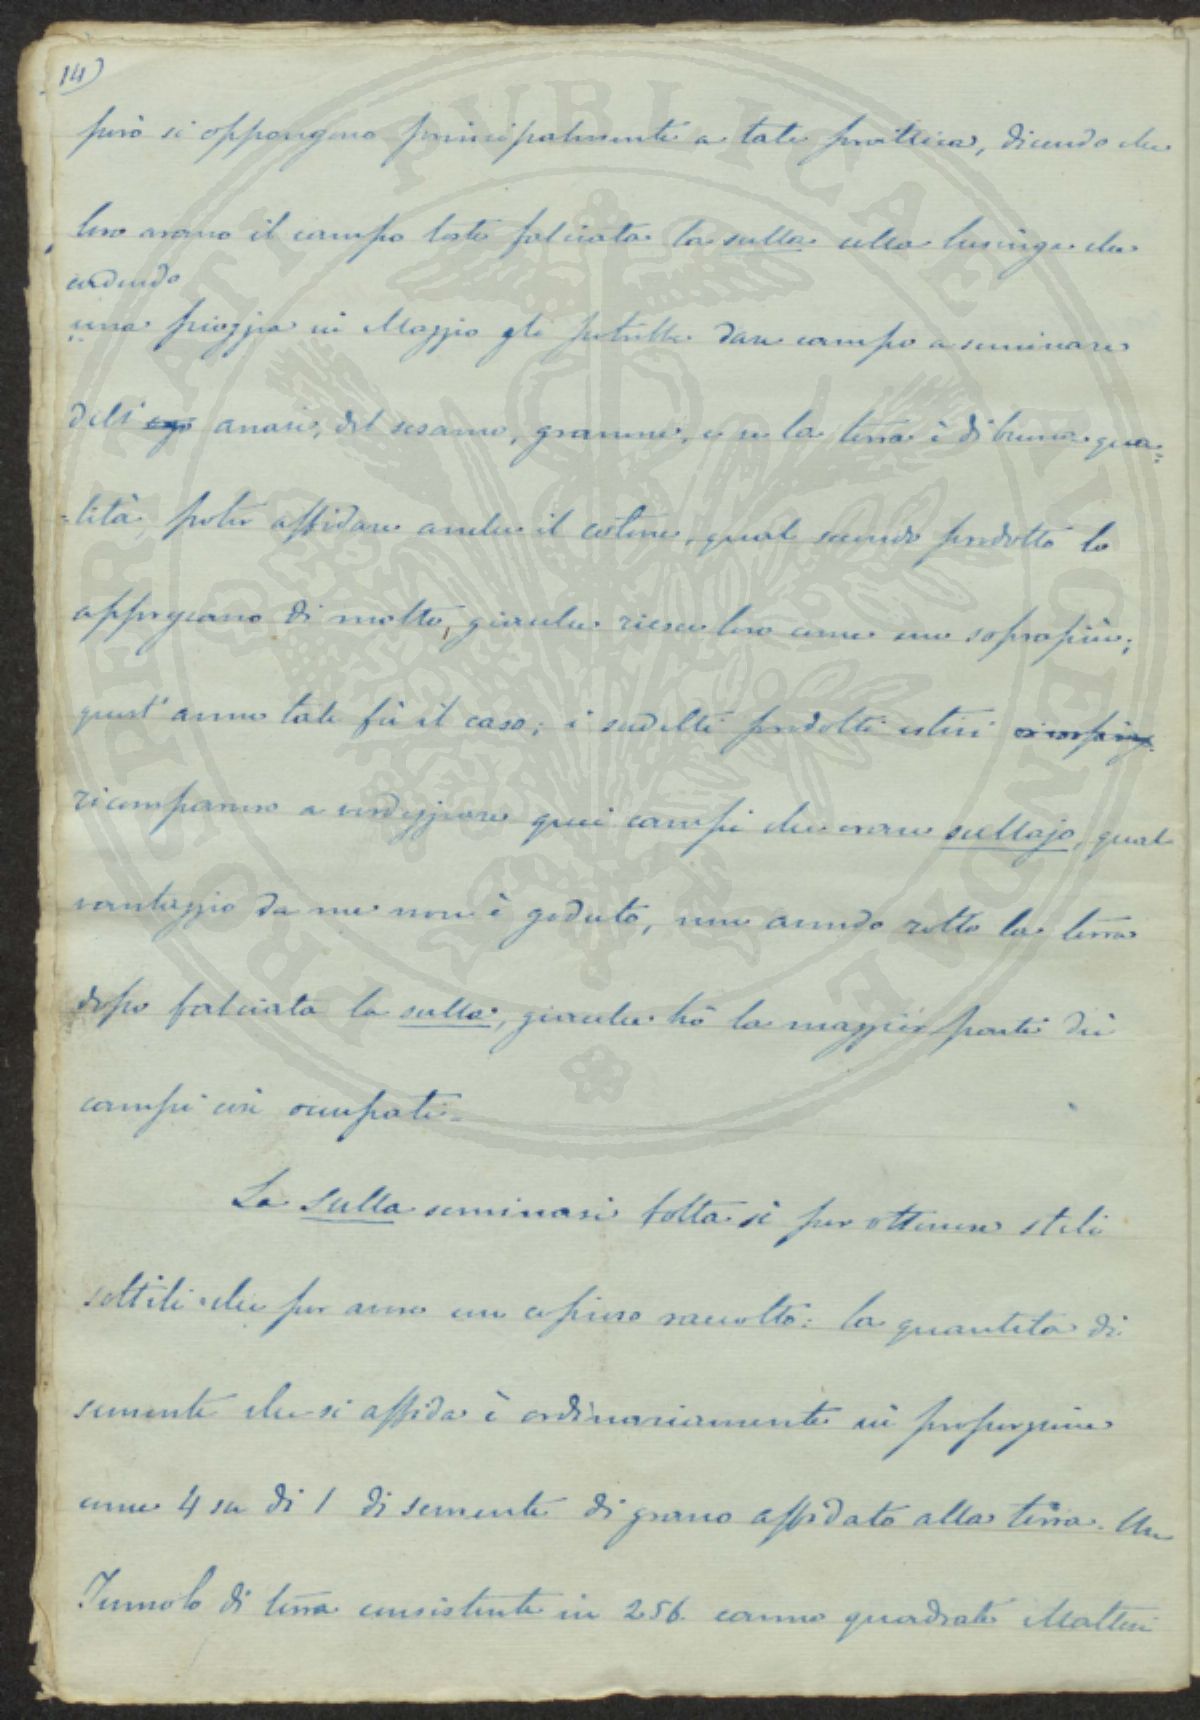 14)
però si oppongono principalmente a tale prattica, dicendo che
loro arano il campo tosto falciata la sulla colla lusinga che
cadendo
una pioggia in Maggio gli potrebbe dare campo a seminare
dell' anasi, del sesamo, granone, e se la terra è di buona qua=
=lità, poter affidare anche il cotone, qual secondo prodotto lo
apprezzano di molto, giacche riesce loro come un soprapiù;
quest' anno tale fù il caso; i sudetti prodotti estivi
ricomparvero a verdeggiare quei campi che erano sullajo, qual
vantaggio da me non è goduto, non avendo rotto la terra
dopo falciata la sulla, giacche hò la maggior parte dei
campi così occupati.
La Sulla seminasi folta sì per ottenere steli
sottili che per avere un copioso raccolto: la quantita di
semente che si affida è ordinariamente in proporzione
come 4 sa di 1 di semente di grano affidato alla terra. Un
Tumolo di terra consistente in 256 canne quadrate Maltesi
PROSPERITATI PVBLICAE AVGENDAE